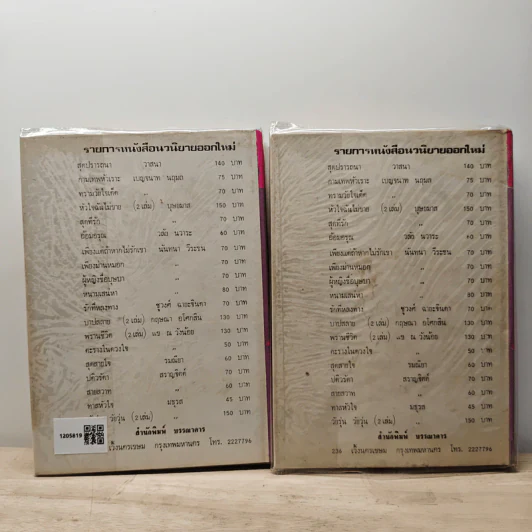 รายการหนังสือนวนิยายออกใหม่
สุดปรารถนา วาสนา 140 บาท
กามเทพหัวเราะ เบญจนาท นฤมล 75 บาท
พรานวัยใจเด็ด " 70 บาท
หัวใจฉันไม่ขาย (2 เล่ม) บุษยมาส 150 บาท
สุดที่รัก " 70 บาท
ย้อมอรุณ วลัย นวาระ 60 บาท
เพียงแต่ถ้าหากไม่รักเขา นันทนา วีระชน 70 บาท
เพียงม่านหมอก " 70 บาท
ผู้หญิงชื่อบุษบา " 70 บาท
หนามเสน่หา " 80 บาท
รักที่หลงทาง ชูวงศ์ ฉายะจินดา 70 บาท
บาปสลาย (2 เล่ม) กฤษณา อโศกสิน 130 บาท
พรานชีวิต (2 เล่ม) แข ณ วังน้อย 130 บาท
คะรางในดวงใจ " 50 บาท
สุดสายใจ รมณียา 60 บาท
ปติวรัดา สราญจิตต์ 70 บาท
สายสวาท " 60 บาท
ทาสหัวใจ มธุรส 45 บาท
วัยวุ่น (2 เล่ม) " 150 บาท
สำนักพิมพ์ บรรณาคาร
เวิ้งนครเขษม กรุงเทพมหานคร โทร. 2227796
1205819
รายการหนังสือนวนิยายออกใหม่
สุดปรารถนา วาสนา 140 บาท
กามเทพหัวเราะ เบญจนาท นฤมล 75 บาท
พรานวัยใจเด็ด " 70 บาท
หัวใจฉันไม่ขาย (2 เล่ม) บุษยมาส 150 บาท
สุดที่รัก " 70 บาท
ย้อมอรุณ วลัย นวาระ 60 บาท
เพียงแต่ถ้าหากไม่รักเขา นันทนา วีระชน 70 บาท
เพียงม่านหมอก " 70 บาท
ผู้หญิงชื่อบุษบา " 70 บาท
หนามเสน่หา " 80 บาท
รักที่หลงทาง ชูวงศ์ ฉายะจินดา 70 บาท
บาปสลาย (2 เล่ม) กฤษณา อโศกสิน 130 บาท
พรานชีวิต (2 เล่ม) แข ณ วังน้อย 130 บาท
คะรางในดวงใจ " 50 บาท
สุดสายใจ รมณียา 60 บาท
ปติวรัดา สราญจิตต์ 70 บาท
สายสวาท " 60 บาท
ทาสหัวใจ มธุรส 45 บาท
วัยรุ่น วัยวุ่น (2 เล่ม) " 150 บาท
สำนักพิมพ์ บรรณาคาร
236 เวิ้งนครเขษม กรุงเทพมหานคร โทร. 2227796